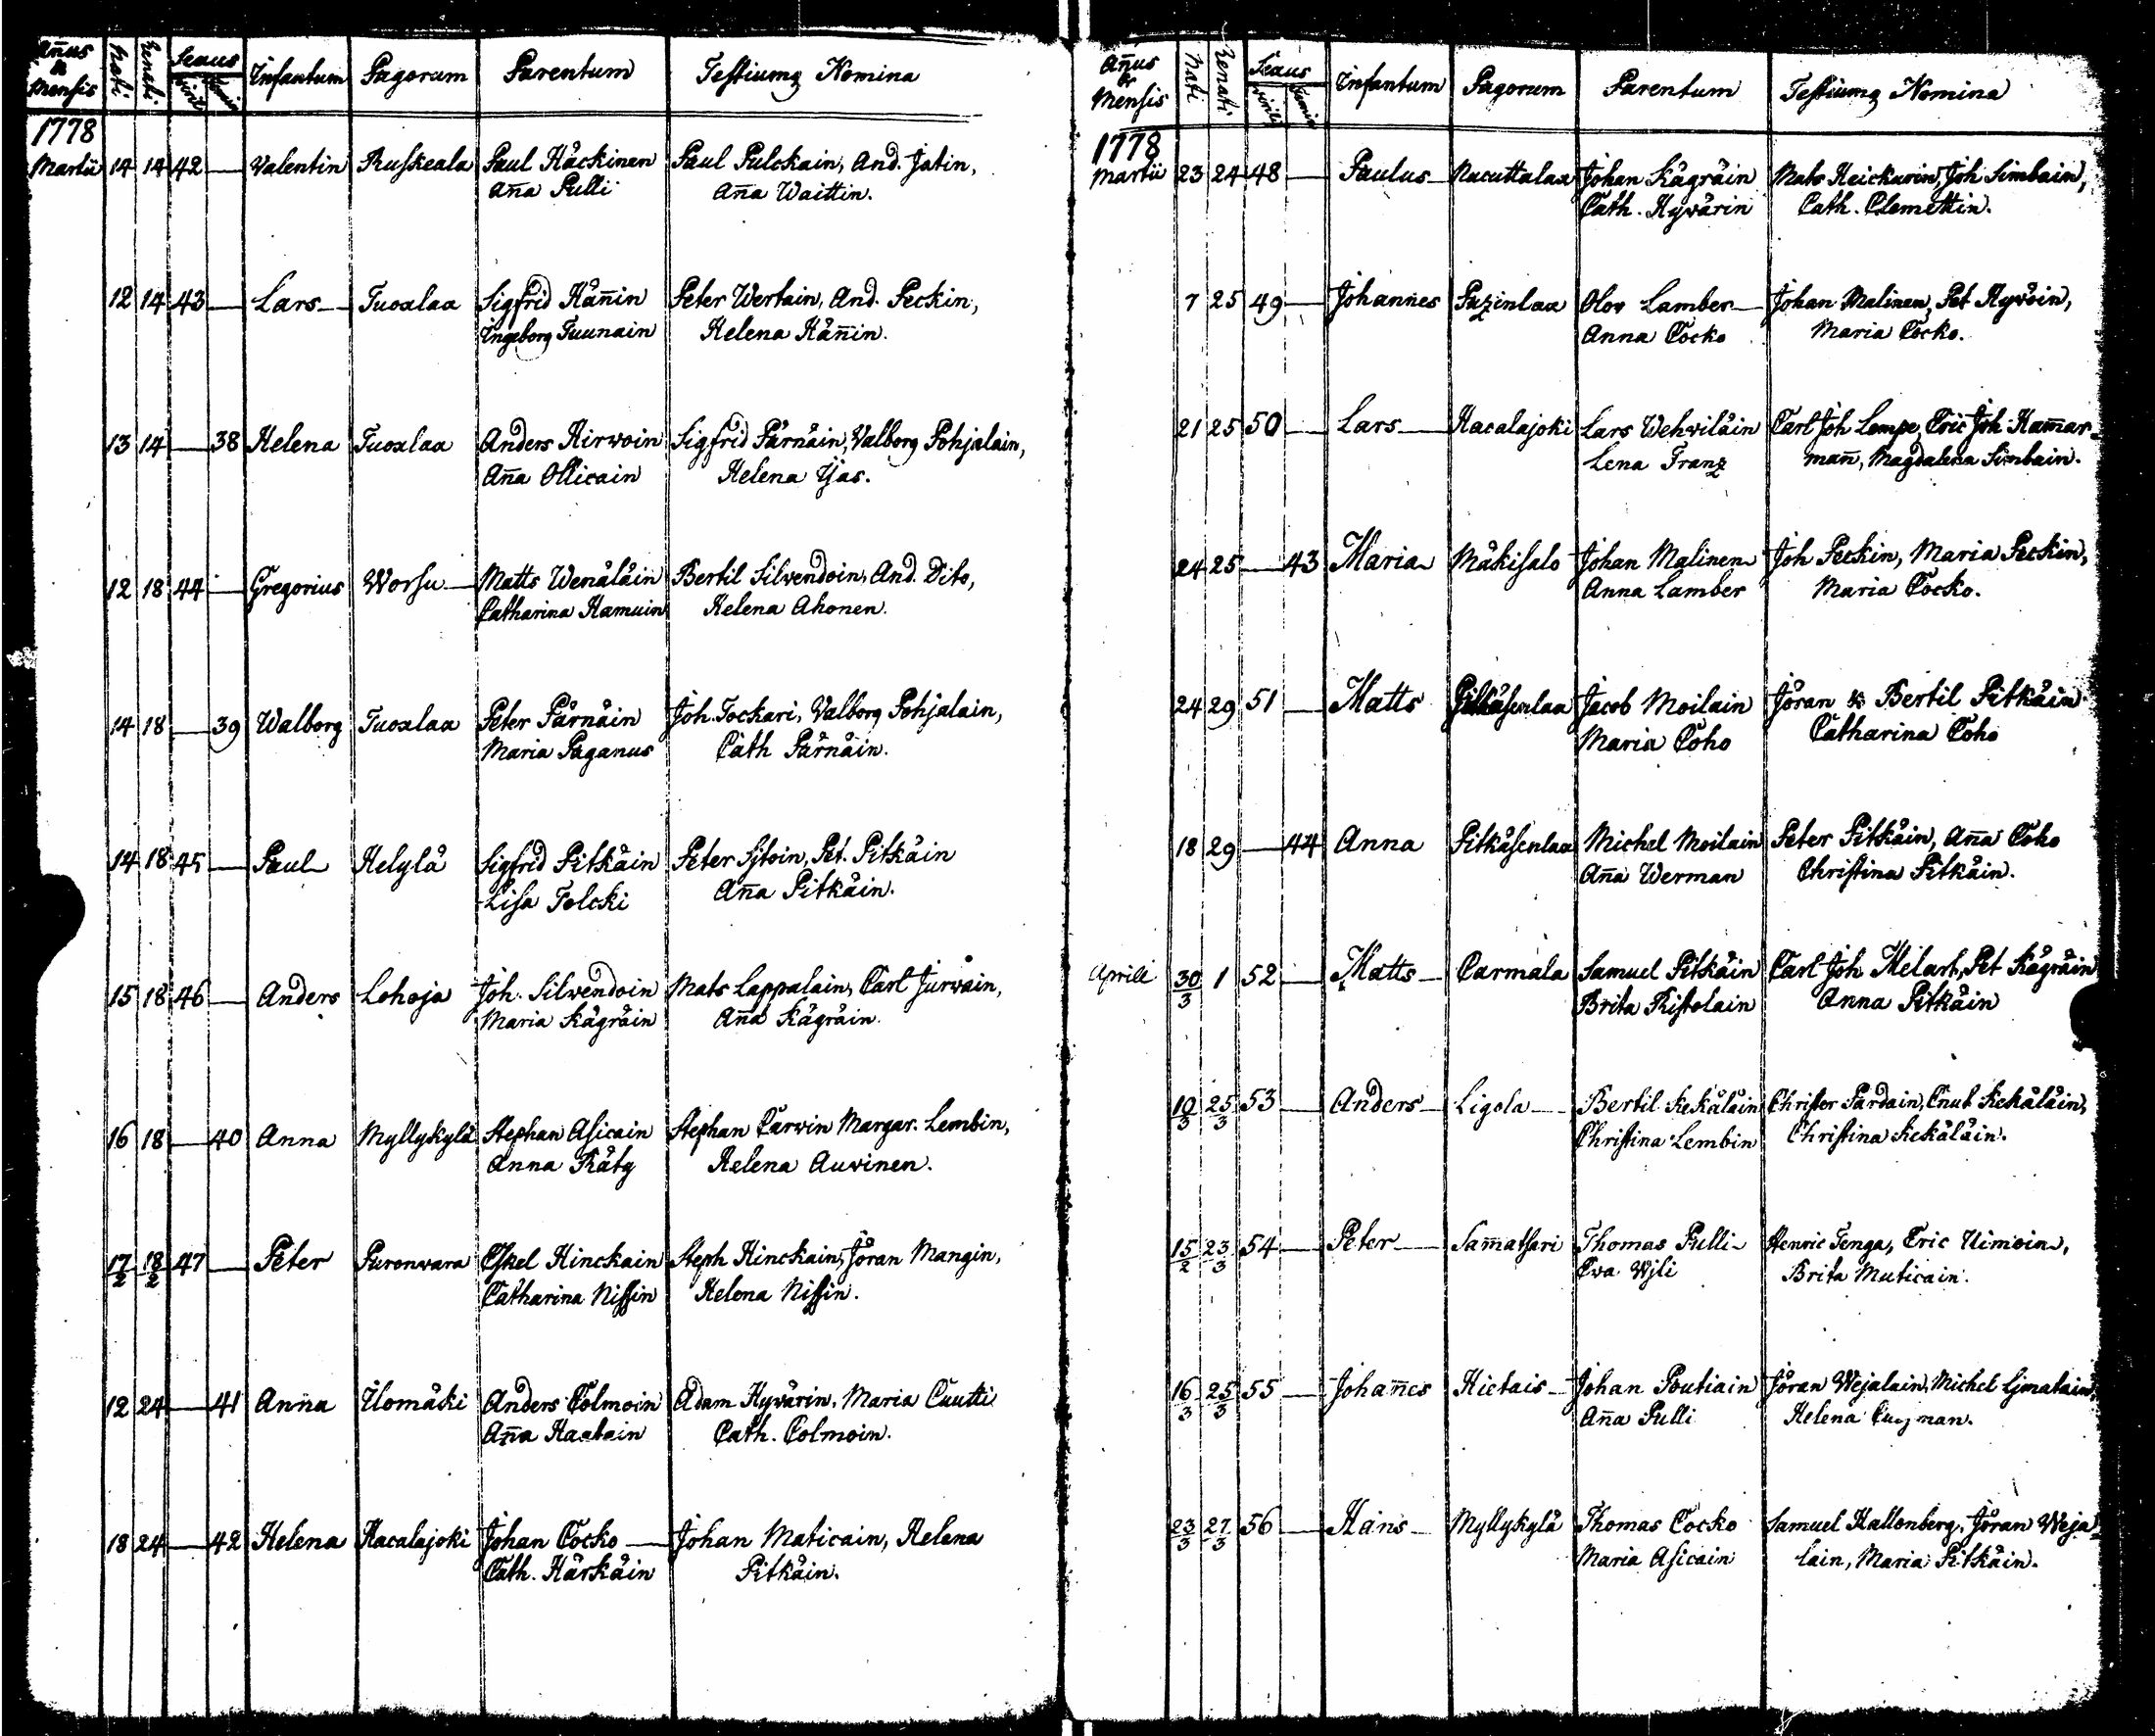 Añus & Mensis Nati Renati Sexus Infantum Pagorum Parentum Testiumq Nomina
Viril Femin
1778
Martii 14 14 42 — Valentin Ruskeala Paul Häckinen Paul Pulckain, And. Jatin,
Aña Pulli Aña Waittin.
12 14 43 — Lars — Tuoxlax Sigfrid Häñin Peter Wertain, And. Peckin,
Ingeborg Tuunain Helena Häñin.
13 14 — 38 Helena Tuoxlax Anders Hirwoin Sigfrid Pärnäin, Valborg Pohjalain,
Aña Ollicain Helena Ijas.
12 18 44 — Gregorius Worsu — Matts Wenäläin Bertil Silvendoin, And. Dito,
Catharina Hamuin Helena Ahonen.
14 18 — 39 Walborg Tuoxlax Peter Pärnäin Joh. Tockari, Valborg Pohjalain,
Maria Paganus Cath Pärnäin.
14 18 45 — Paul Helylä Sigfrid Pitkäin Peter Sjtoin, Pet. Pitkäin
Lisa Tolcki Aña Pitkäin.
15 18 46 — Anders Lohoja Joh. Silvendoin Mats Lappalain, Carl Jurvain,
Maria Kägräin Aña Kägräin.
16 18 — 40 Anna Myllykylä Stephan Asicain Stephan Carwin Margar. Lembin,
Anna Räty Helena Auvinen.
17/2 18/2 47 — Peter Puronvara Eskel Hinckain Steph Hinckain, Jöran Mangin,
Catharina Nissin Helena Nissin.
12 24 — 41 Anna Ilomäki Anders Colmoin Adam Hyvärin, Maria Cuutti
Aña Haatain Cath. Colmoin.
18 24 — 42 Helena Hacalajoki Johan Cocko — Johan Maticain, Helena
Cath. Härkäin Pitkäin.
Añus & Mensis Nati Renati Sexus Infantum Pagorum Parentum Testiumq Nomina
Virili Femin
1778
Martii 23 24 48 — Paulus Nacuttalax Johan Kägräin Mats Heickurin, Joh Simbain,
Cath. Hyvärin Cath. Clemettin.
7 25 49 — Johannes Puzinlax Olov Lamber — Johan Malinen, Pet Hyvöin,
Anna Cocko Maria Cocko.
21 25 50 — Lars — Hacalajoki Lars Wehviläin Carl Joh Lampe, Eric Joh Ham̄ar-
Lena Franz mañ, Magdalena Simbain.
24 25 — 43 Maria Mäkisalo Johan Malinen Joh Peckin, Maria Peckin,
Anna Lamber Maria Cocko.
24 29 51 — Matts Pitkäsenlax Jacob Moilain Jöran & Bertil Pitkäin
Maria Coho Catharina Coho
18 29 — 44 Anna Pitkäsenlax Michel Moilain Peter Pitkäin, Aña Coho
Aña Werman Christina Pitkäin.
Aprill 30/3 1 52 — Matts — Carmala Samuel Pitkäin Carl Joh Melart, Pet Kägräin
Brita Ristolain Anna Pitkäin
10/3 25/3 53 — Anders — Ligola — Bertil Kekäläin Christer Pardain, Cnut Kekäläin,
Christina Lembin Christina Kekäläin.
15/2 23/3 54 — Peter — Sam̄atsari Thomas Pulli Henric Tenga, Eric Uimoin,
Eva Wjli Brita Muticain.
16/3 25/3 55 — Johañes Hietais — Johan Poutiain Jöran Wejalain, Michel Ljmatain,
Aña Pulli Helena
23/3 27/3 56 — Hans — Myllykylä Thomas Cocko Samuel Hallonberg, Jöran Weja-
Maria Asicain lain, Maria Pitkäin.